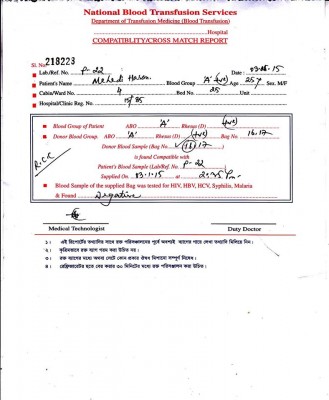 National Blood Transfusion Services
Department of Transfusion Medicine (Blood Transfusion)
Hospital
COMPATIBLITY/CROSS MATCH REPORT
Sl. No. 218223
Lab./Ref. No. P-22 Date: 03-01-15
Patient's Name Mehedi Hasan Blood Group 'A' (+ve) Age 25y Sex. M/F
Cabin/Ward No. 4 Bed No. 25 Unit
Hospital/Clinic Reg. No.
Blood Group of Patient ABO 'A' Rhesus (D) (+ve)
Donor Blood Group ABO 'A' Rhesus (D) (+ve) Bag No 16,17
Donor Blood Sample (Bag No. 16, 17
is found Compatible with
Patient's Blood Sample (Lab/Ref. No. P-22
Supplied On 03-1-15 at Pm
R.C.C
Blood Sample of the supplied Bag was tested for HIV, HBV, HCV, Syphilis, Malaria
& Found Negative
Medical Technologist Duty Doctor
১। এই রিপোর্টের তথ্যাদির সাথে রক্ত পরিসঞ্চালনের পূর্বে অবশ্যই ব্যাগের গায়ে লেখা তথ্যাদি মিলিয়ে নিন।
২। কৃত্রিমভাবে রক্ত ব্যাগ গরম করা উচিত নয়।
৩। রক্ত ব্যাগের মধ্যে অথবা সেটে কোন প্রকার ঔষধ মিশানো সম্পূর্ণ নিষেধ।
৪। রেফ্রিজারেটর হতে বের করার ৩০ মিনিটের মধ্যে রক্ত পরিসঞ্চালন করা উচিত।